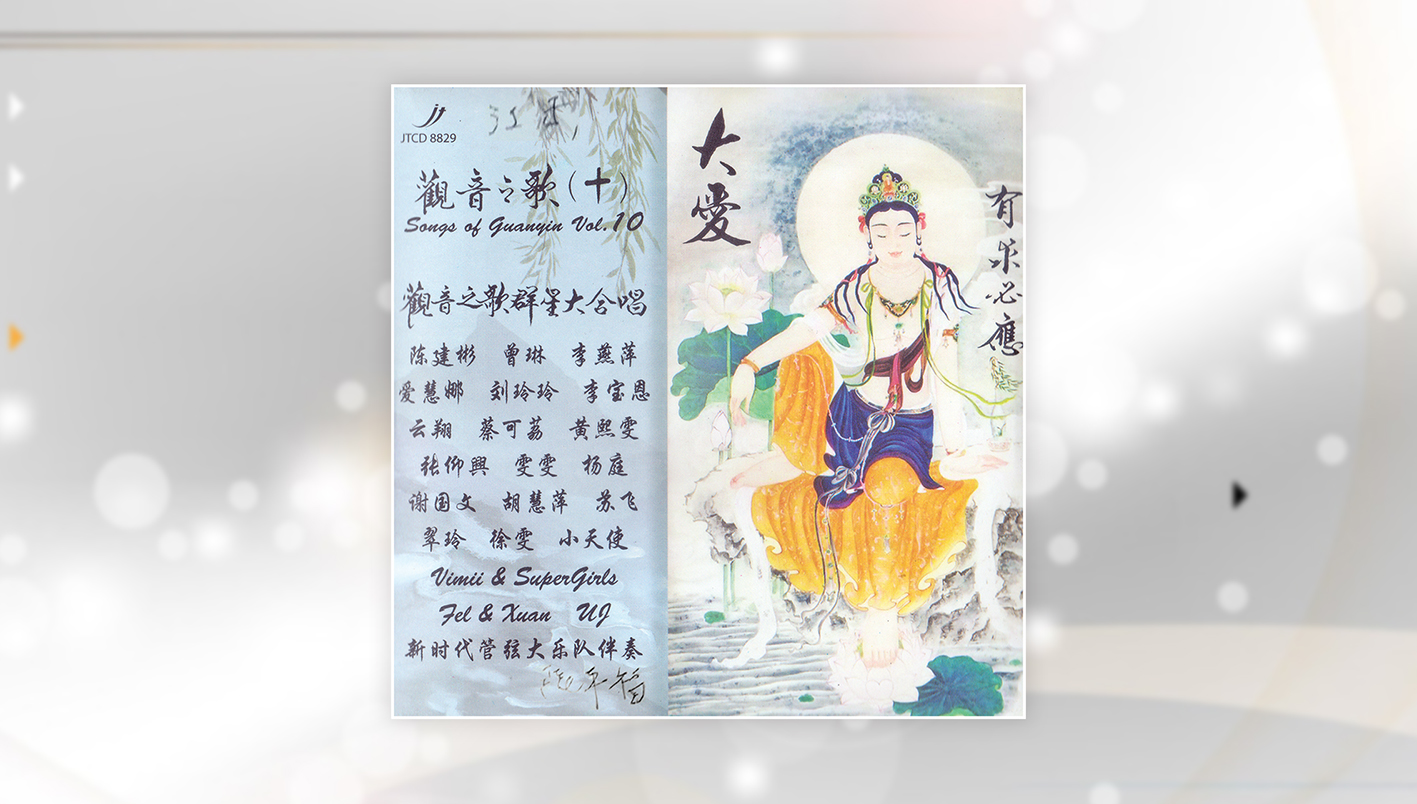 jt
JTCD 8829
觀音之歌(十)
Songs of Guanyin Vol.10
觀音之歌群星大合唱
陈建彬 曾琳 李燕萍
爱慧娜 刘玲玲 李宝恩
云翔 蔡可荔 黄熙雯
张仰興 雯雯 杨庭
谢国文 胡慧萍 苏飞
翠玲 徐雯 小天使
Vimii & SuperGirls
Fel & Xuan UJ
新时代管弦大乐队伴奏
大愛
有求必應